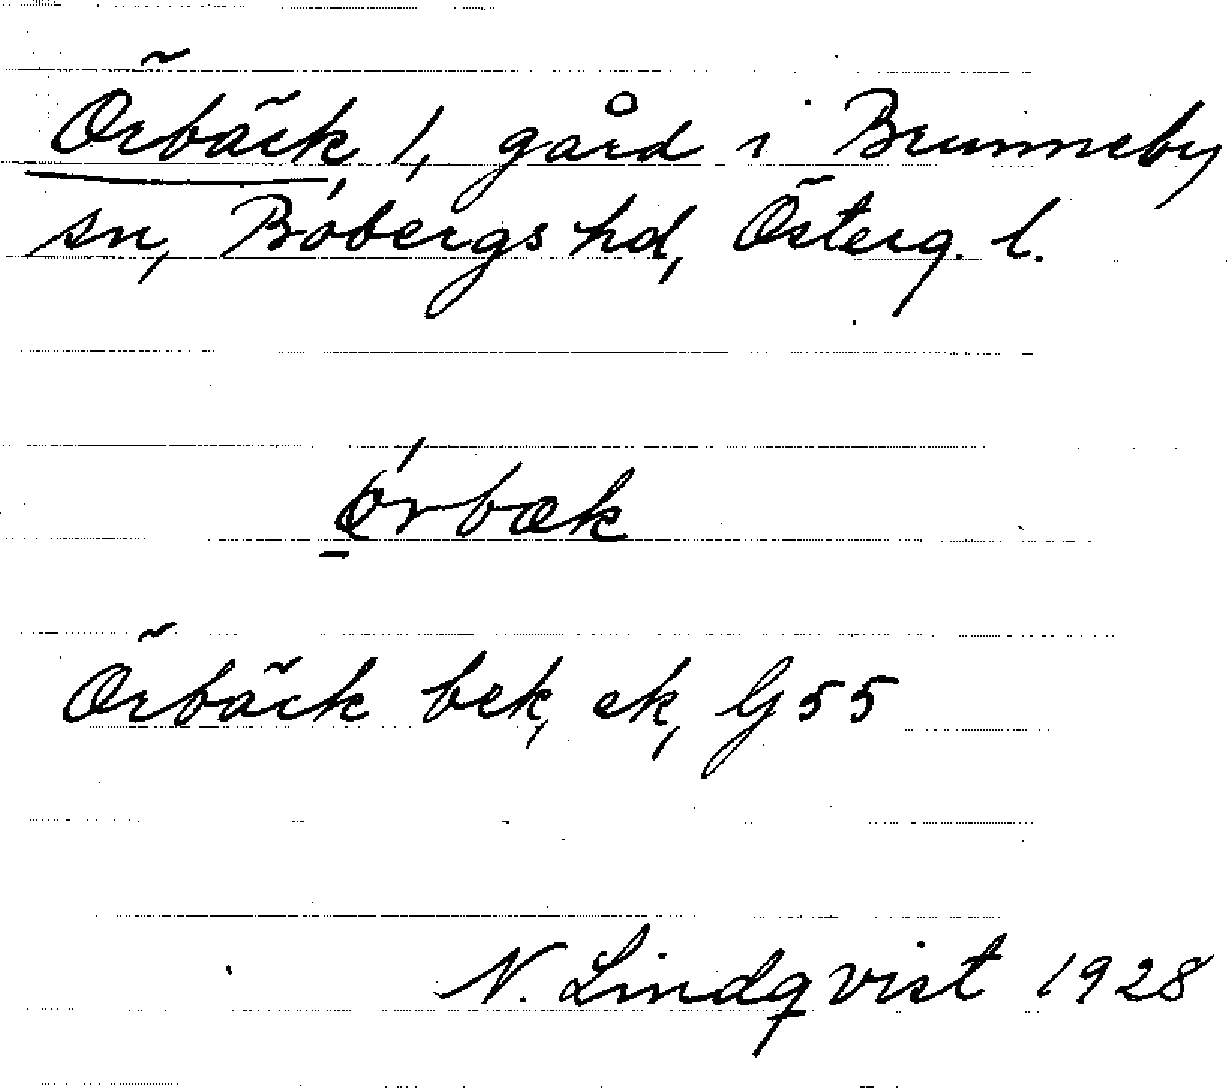 Örbäck 1, gård i Brunneby
sn, Bobergs hd, Österg. l.
ǿrbæk
Örbäck bek, ek, G 55
N. Lindqvist 1928